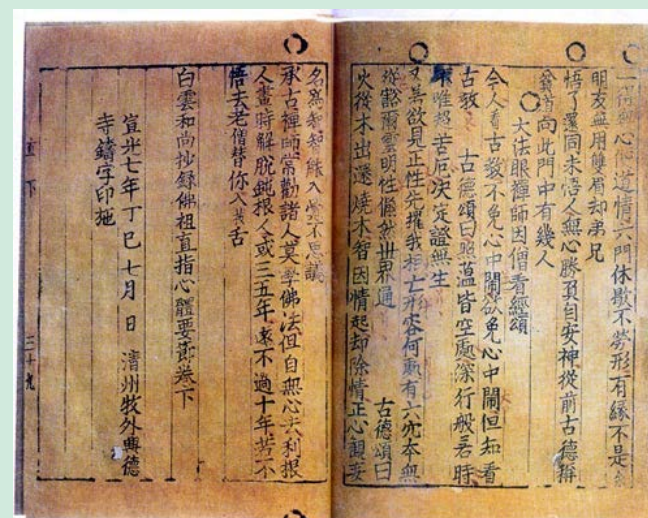 一得心道情六門休歇不勞形有緣不是
明友無用雙眉却弟兄
悟了還同未悟人無心勝負自安神從前古德稱
貧道向此門中有幾人
大法眼禪師因僧看經頌
今人看古教不免心中鬧欲免心中鬧但知看
古教 古德頌曰照蘊皆空處深行般若時
唯超苦厄決定證無生
又善欲見正性先摧我相亡形容何更有六宂本無
從豁爾雲明性儼然世界通 古德頌曰
火從木出還燒木智因情起却除情正心觀妄
名爲智智妄不思議
承古禪師常勸諸人莫學佛法但自無心去利根
人晝時解脫鈍根人或三五年遠不過十年若不
悟去老僧替你入舌
白雲和尚抄錄佛祖直指心體要節卷下
宣光七年丁巳七月 日 清州牧外興德
寺鑄字印施
下
三十九